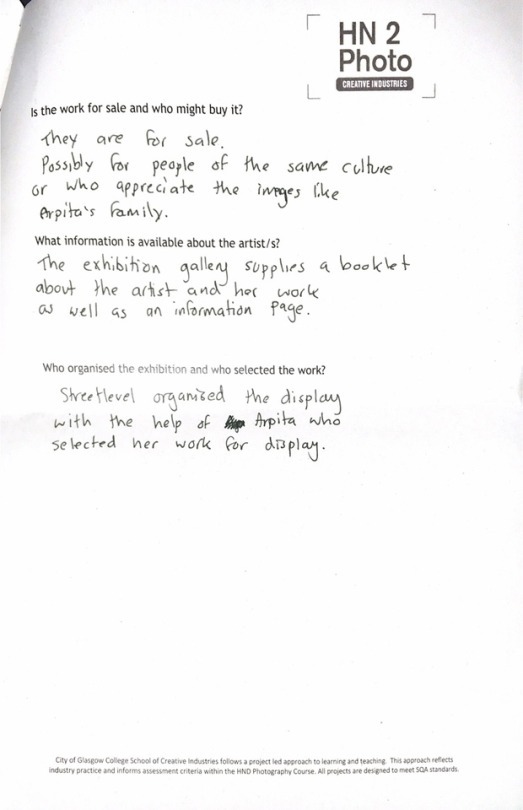 HN 2
Photo
CREATIVE INDUSTRIES
Is the work for sale and who might buy it?
They are for sale.
Possibly for people of the same culture
or who appreciate the images like
Arpita's family.
What information is available about the artist/s?
The exhibition gallery supplies a booklet
about the artist and her work
as well as an information page.
Who organised the exhibition and who selected the work?
Streetlevel organised the display
with the help of Arpita who
selected her work for display.
City of Glasgow College School of Creative Industries follows a project led approach to learning and teaching. This approach reflects
industry practice and informs assessment criteria within the HND Photography Course. All projects are designed to meet SQA standards.